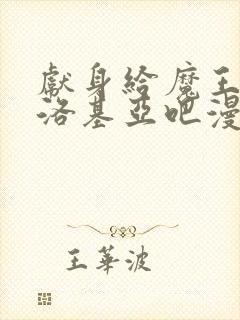 獻身給魔王
洛基亞吧漫
王華波